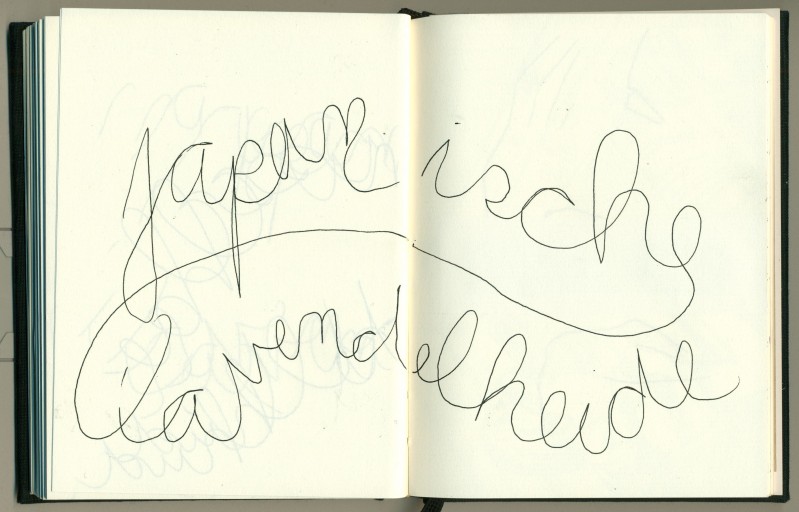 japanische
lavendelheide